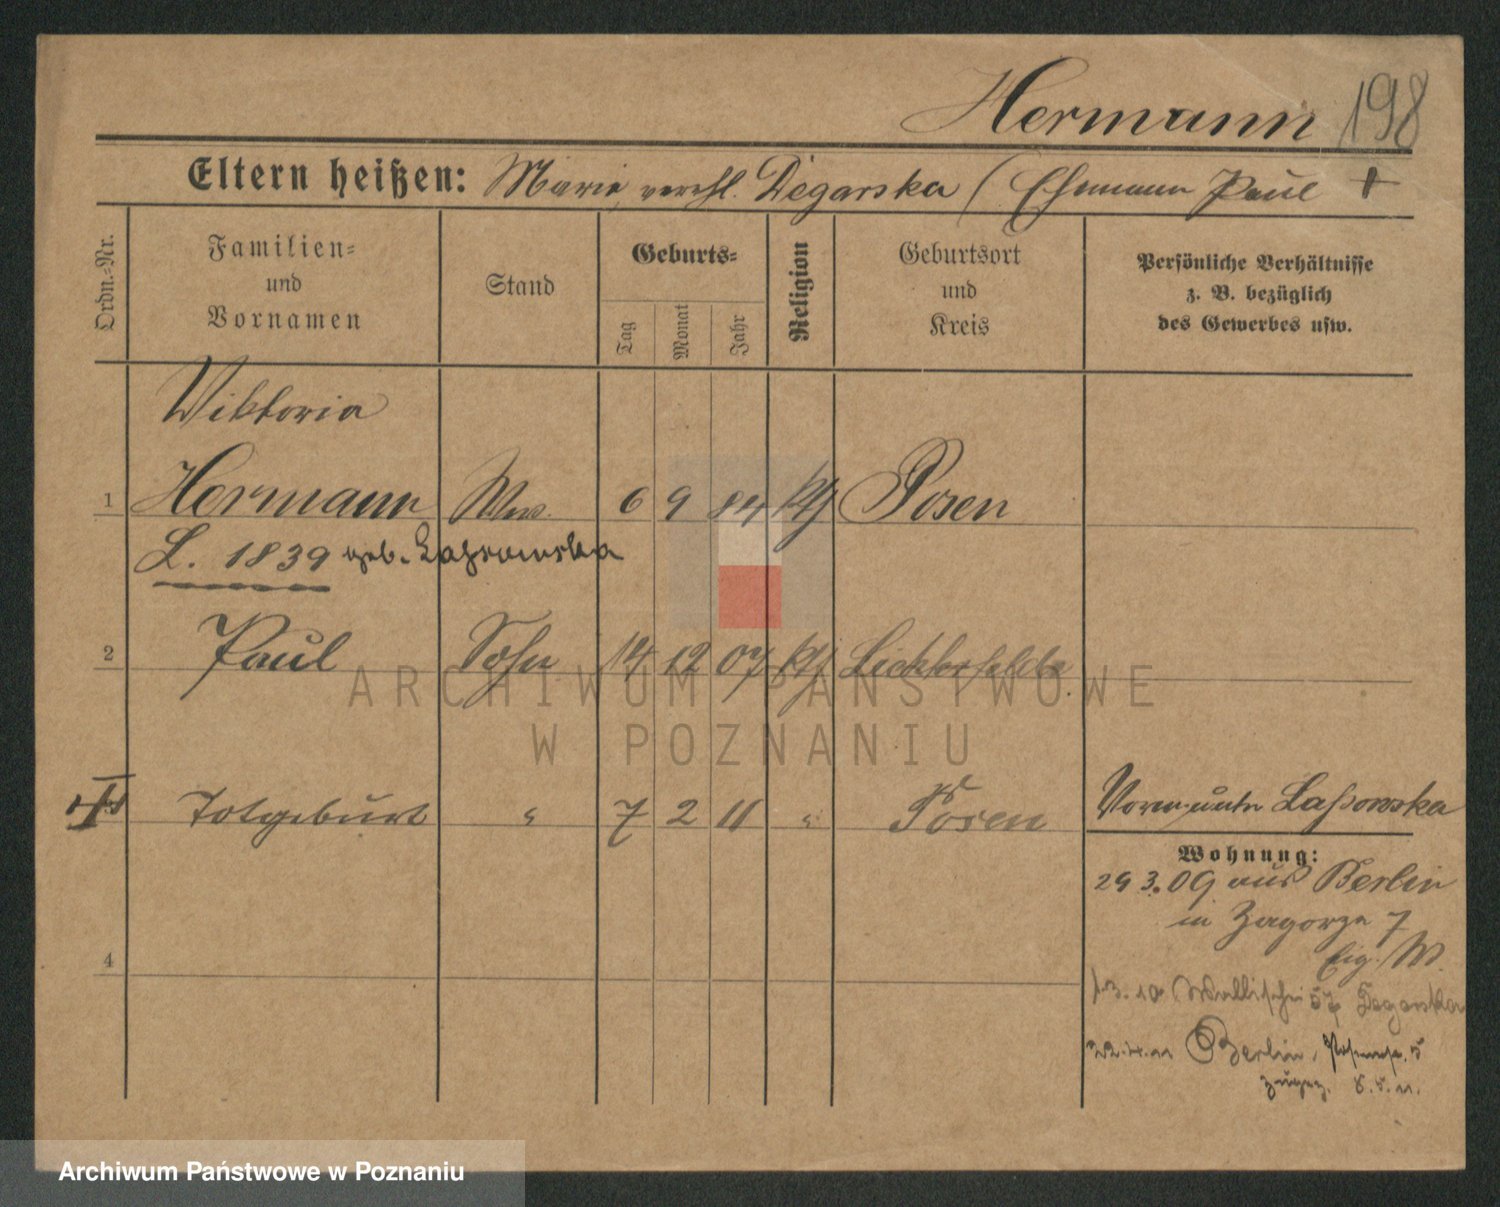 Hermann 198
Eltern heißen: Marie verehl. Degarska (Ehemann Paul †
Ordn.-Nr.
Familien-
und
Vornamen
Stand
Geburts-
Tag
Monat
Jahr
Religion
Geburtsort
und
Kreis
Persönliche Verhältnisse
z. B. bezüglich
des Gewerbes usw.
Wiktoria
1 Hermann Ww. 6 9 84 kth Posen
L. 1839 geb. Lassowska
2 Paul Sohn 14 12 07 kth Lichterfelde
Totgeburt " 7 2 11 " Posen
Vorm. unter Laßowska
Wohnung:
29 3. 09 aus Berlin
in Zagorze 7
Eig. W.
4
Wallischei 57 Degarska
22.4.11 Berlin, 5
zugez. 8.5.11.
ARCHIWUM PAŃSTWOWE
W POZNANIU
Archiwum Państwowe w Poznaniu